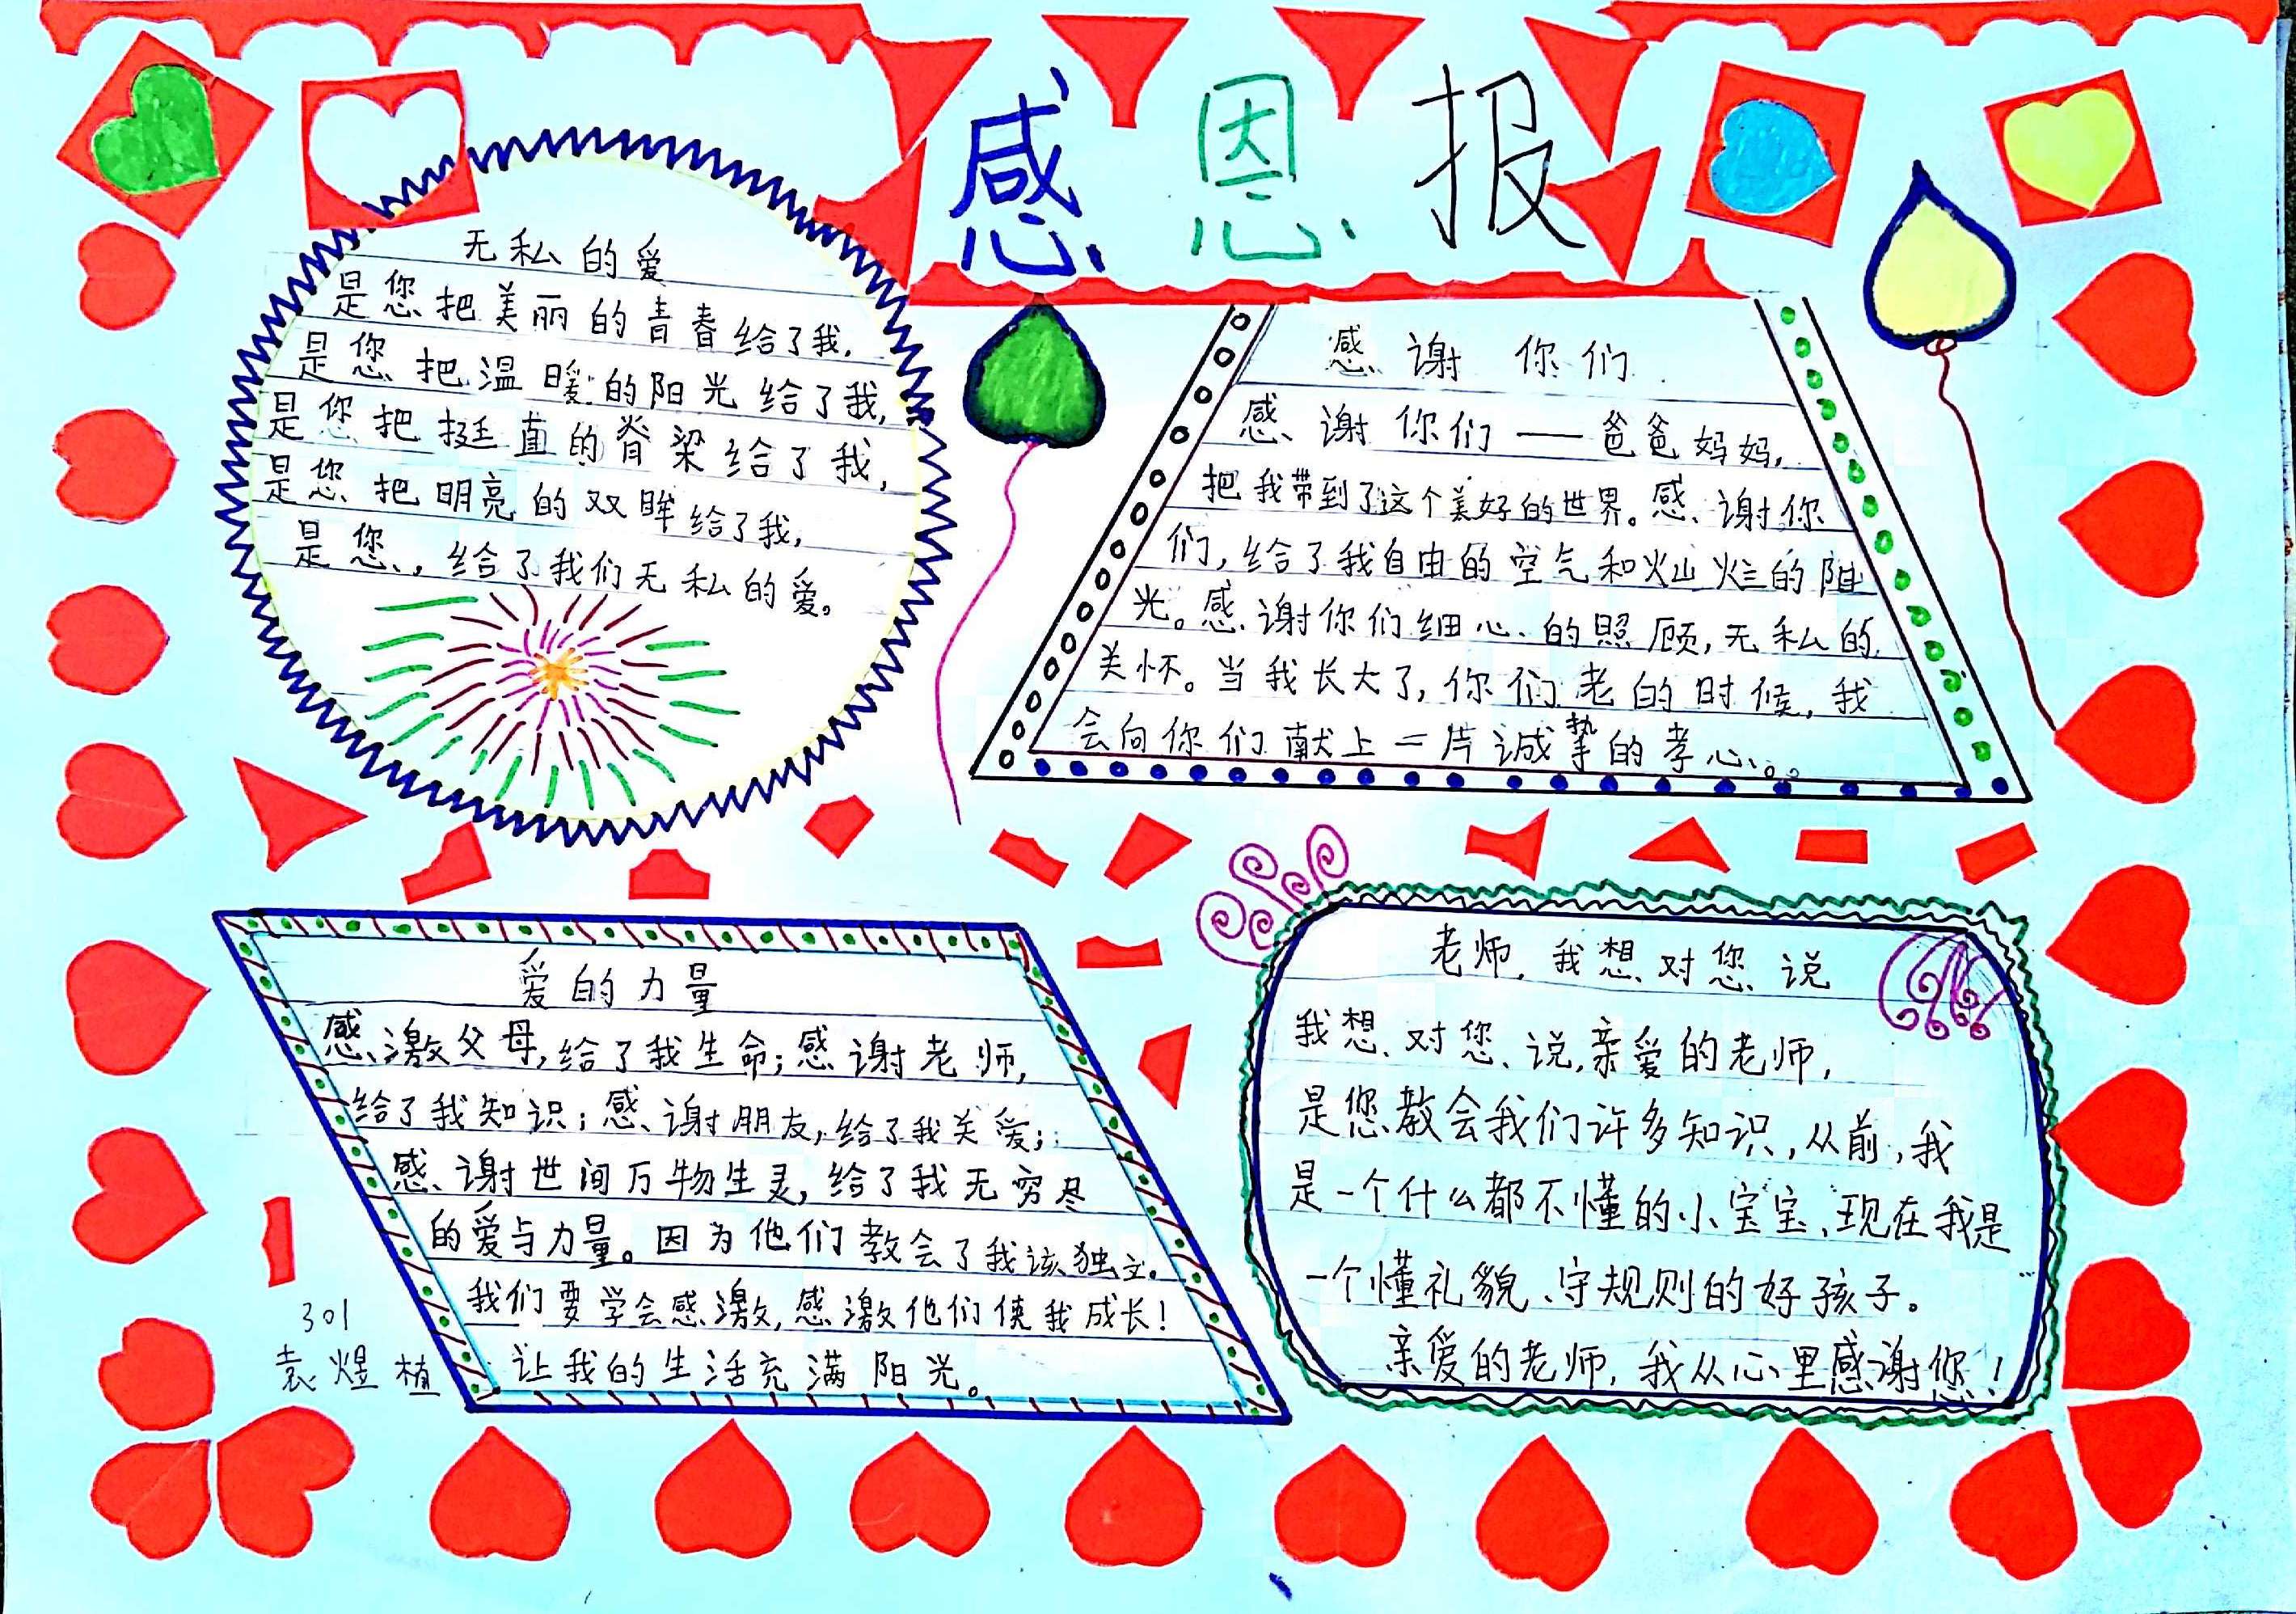 感恩报
无私的爱
是您把美丽的青春给了我,
是您把温暖的阳光给了我,
是您把挺直的脊梁给了我,
是您把明亮的双眸给了我,
是您,给了我们无私的爱。
感谢你们
感谢你们——爸爸妈妈,
把我带到了这个美好的世界。感谢你
们,给了我自由的空气和灿烂的阳
光。感谢你们细心的照顾,无私的
关怀。当我长大了,你们老的时候,我
会向你们献上一片诚挚的孝心。。
爱的力量
感激父母,给了我生命;感谢老师,
给了我知识;感谢朋友,给了我关爱;
感谢世间万物生灵,给了我无穷尽
的爱与力量。因为他们教会了我该独立。
我们要学会感激,感激他们使我成长!
让我的生活充满阳光。
301
袁煜植
老师,我想对您说
我想对您说,亲爱的老师,
是您教会我们许多知识,从前,我
是一个什么都不懂的小宝宝、现在我是
一个懂礼貌、守规则的好孩子。
亲爱的老师,我从心里感谢您!